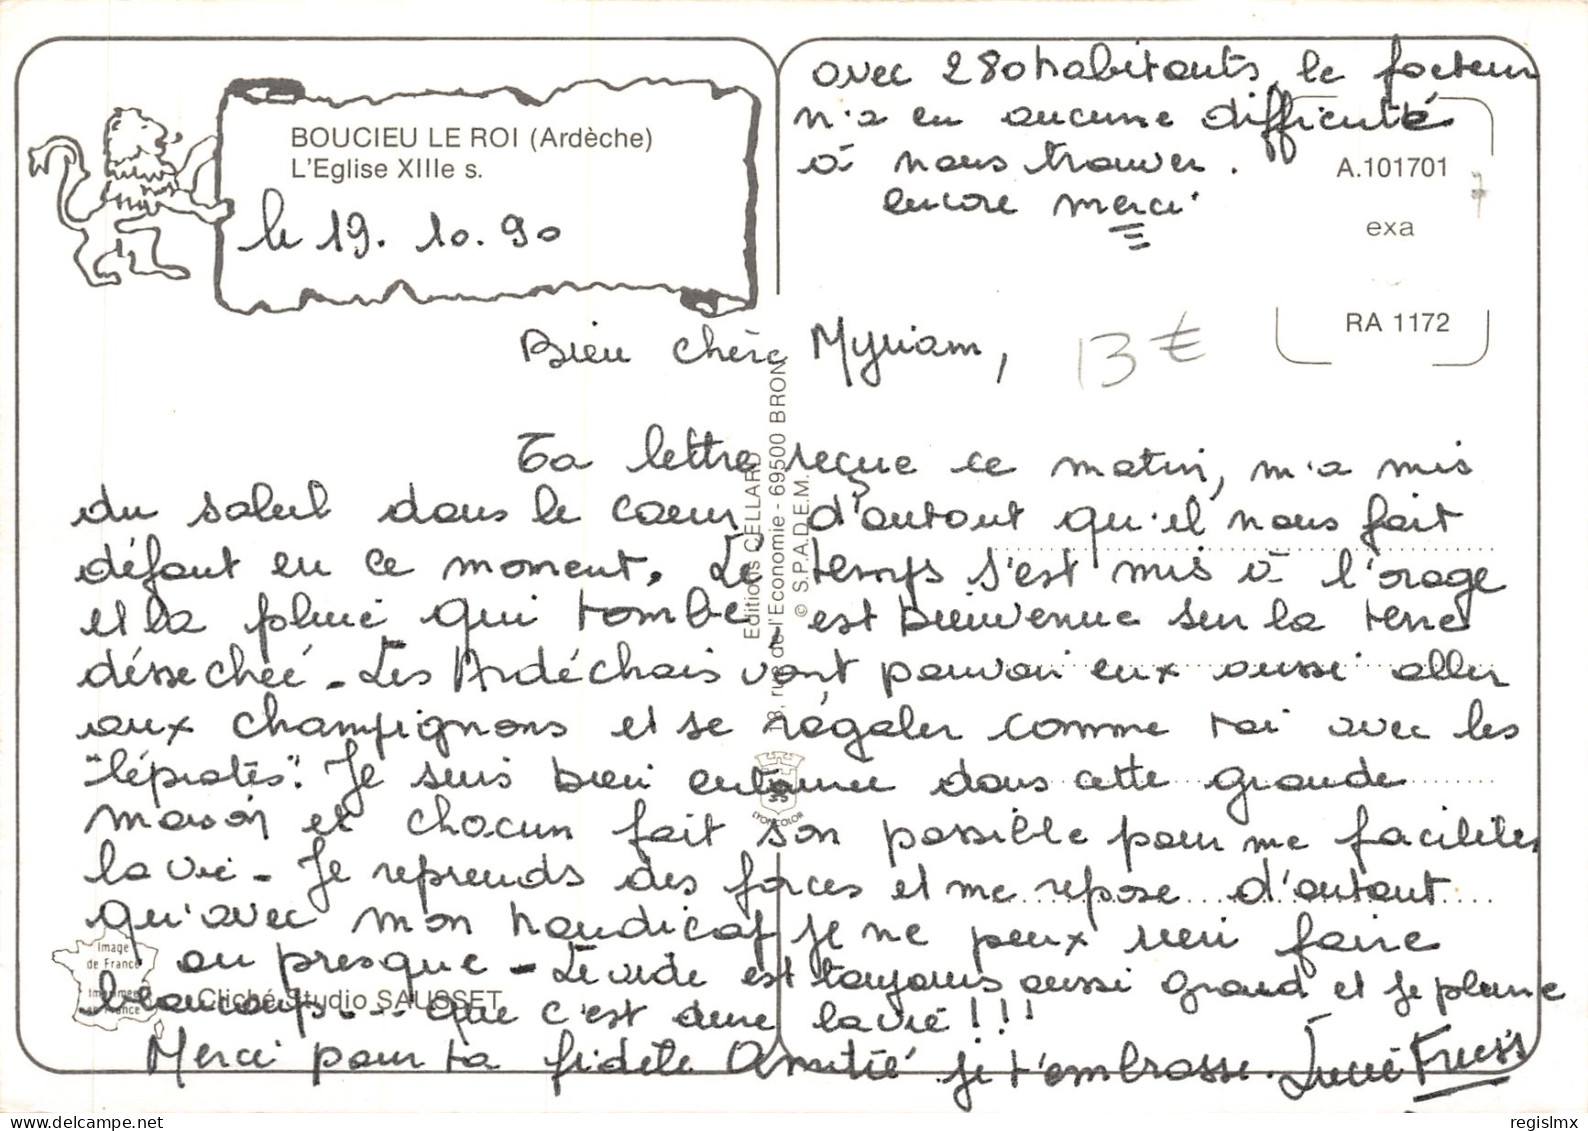 BOUCIEU LE ROI (Ardèche)
L'Eglise XIIIe s.
le 19.10.90
avec 280 habitants, le facteur
n'a eu aucune difficulté
à nous trouver.
encore merci.
A.101701
exa
RA 1172
13 €
Bien chère Myriam,
Ta lettre, reçue ce matin, m'a mis
du soleil dans le coeur, d'autant qu'il nous fait
défaut en ce moment. Le temps s'est mis à l'orage
et la pluie qui tombe, est bienvenue sur la terre
désséchée - Les Ardéchais vont pouvoir eux aussi aller
aux champignons et se régaler comme toi avec les
"lépiotes". Je suis bien entourée dans cette grande
maison et chacun fait son possible pour me faciliter
la vie - Je reprends des forces et me repose d'autant
qu'avec mon handicap je ne peux rien faire
ou presque - Le vide est toujours aussi grand et je pleure
beaucoup.... que c'est dure la vie !!!
Merci pour ta fidèle Amitié je t'embrasse. Lucie
Editions CELLARD
rue de l'Economie - 69500 BRON
© S.P.A.D.E.M.
LYONCOLOR
Image
de France
Imprimée
en France
Cliché Studio SAUSSET
regislmx